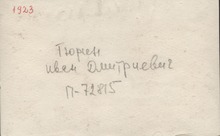 1923
Тюрин
иван Дмитриевич
П-72815